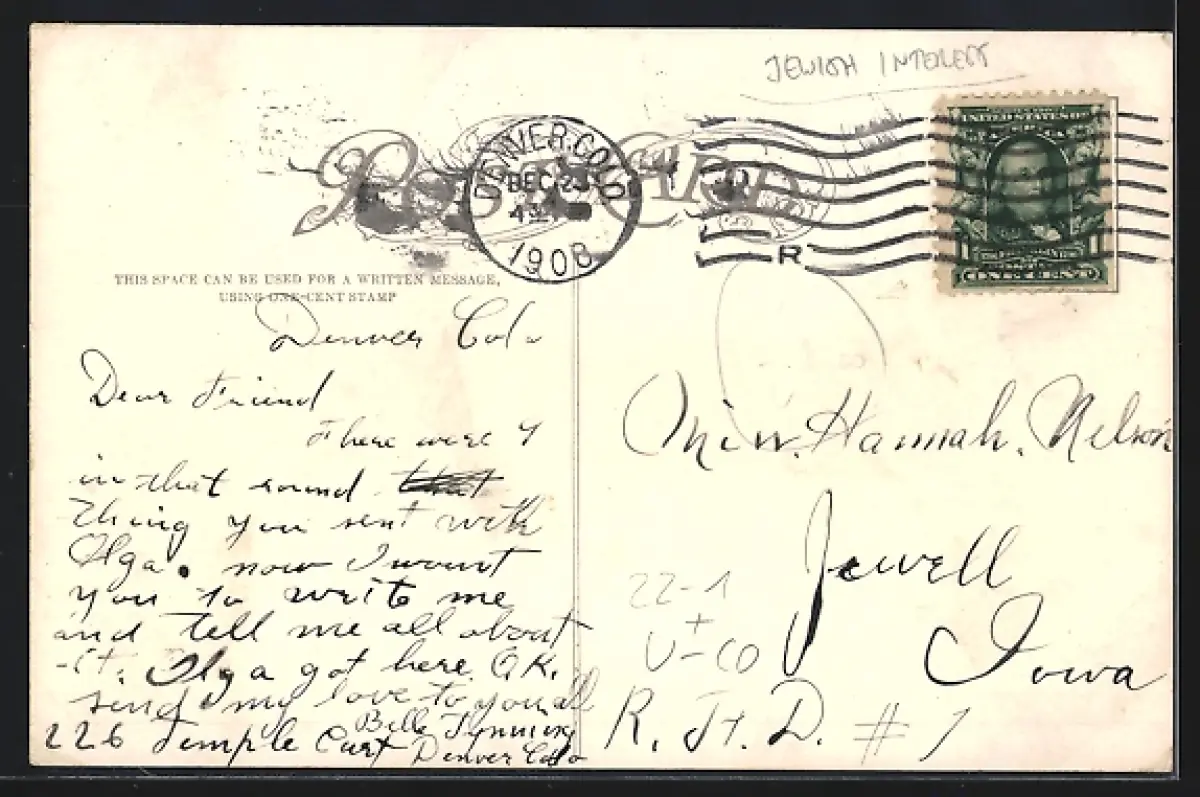 JEWISH INTEREST
POST CARD
DENVER, COLO
DEC 23
1908
R
UNITED STATES OF
ONE CENT
THIS SPACE CAN BE USED FOR A WRITTEN MESSAGE,
USING ONE-CENT STAMP
Denver Colo
Dear Friend
There were 4
in that round that
thing you sent with
Olga. now I want
you to write me
and tell me all about
it. Olga got here O.K.
send my love to you all
Belle
226 Temple Curt Denver Colo
Miss. Hannah. Nelson
Jewell
Iowa
R. F. D. # 1
22-1
+